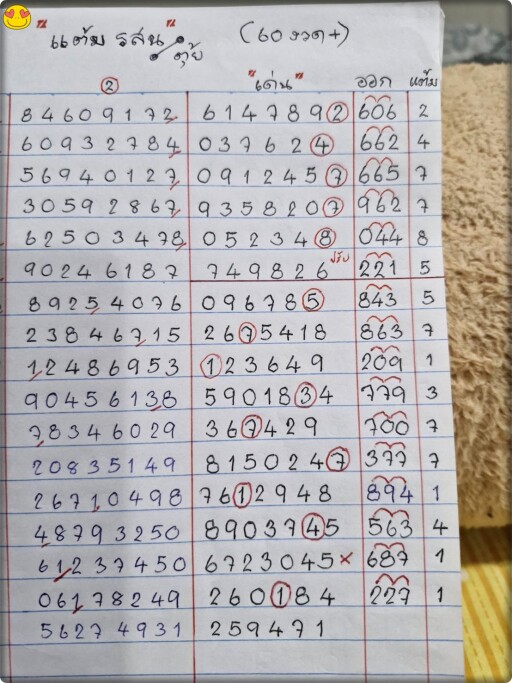 "แต้ม รสน" ตุ้ย (60 งวด+)
② "เด่น" ออก แต้ม
84609172 6147892 606 2
60932784 037624 662 4
56940127 0912457 665 7
30592867 9358207 962 7
62503478 052348 044 8
90246187 749826 ปรับ 221 5
89254076 096785 843 5
23846715 2675418 863 7
12486953 123649 209 1
90456138 5901834 779 3
78346029 367429 700 7
20835149 8150247 377 7
26710498 7612948 894 1
48793250 8903745 563 4
61237450 6723045 × 687 1
06178249 260184 227 1
56274931 259471